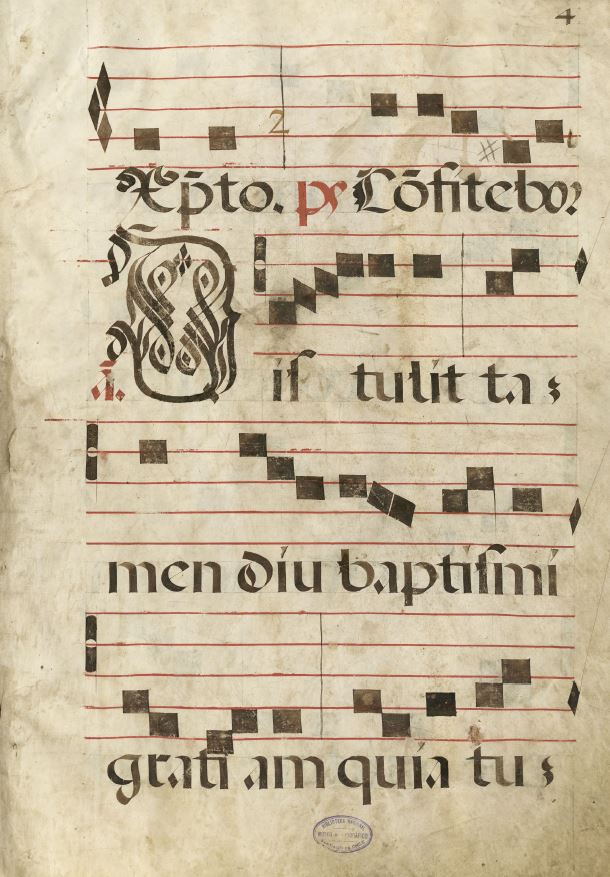 4
2
Xp̄to. ps Cōfitebor
ā. Diſ tulit ta
men diu baptiſmi
grati am quia tu
BIBLIOTECA NACIONAL